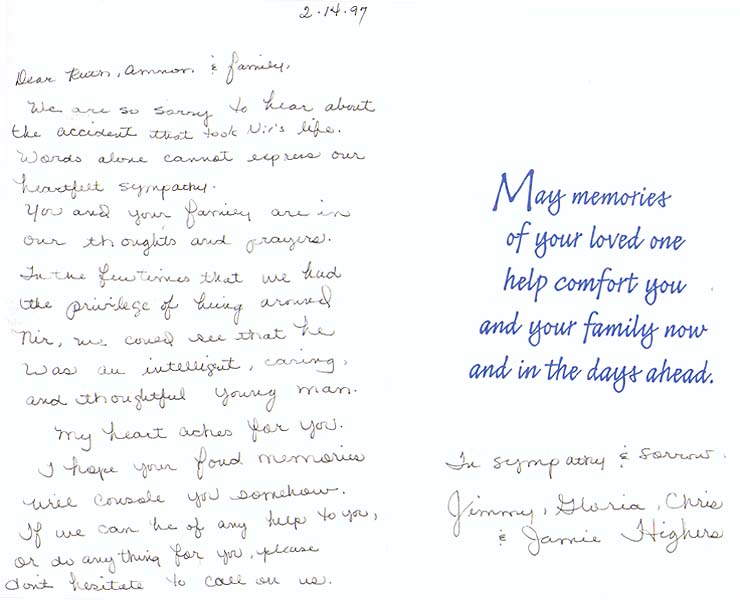 2·14·97
Dear Ruth, Amnon & family,
We are so sorry to hear about
the accident that took Nir's life.
Words alone cannot express our
heartfelt sympathy.
You and your family are in
our thoughts and prayers.
In the few times that we had
the privilege of being around
Nir, we could see that he
was an intelligent, caring,
and thoughtful young man.
My heart aches for you.
I hope your fond memories
will console you somehow.
If we can be of any help to you,
or do anything for you, please
don't hesitate to call on us.
May memories
of your loved one
help comfort you
and your family now
and in the days ahead.
In sympathy & sorrow.
Jimmy, Gloria, Chris
& Jamie Highers